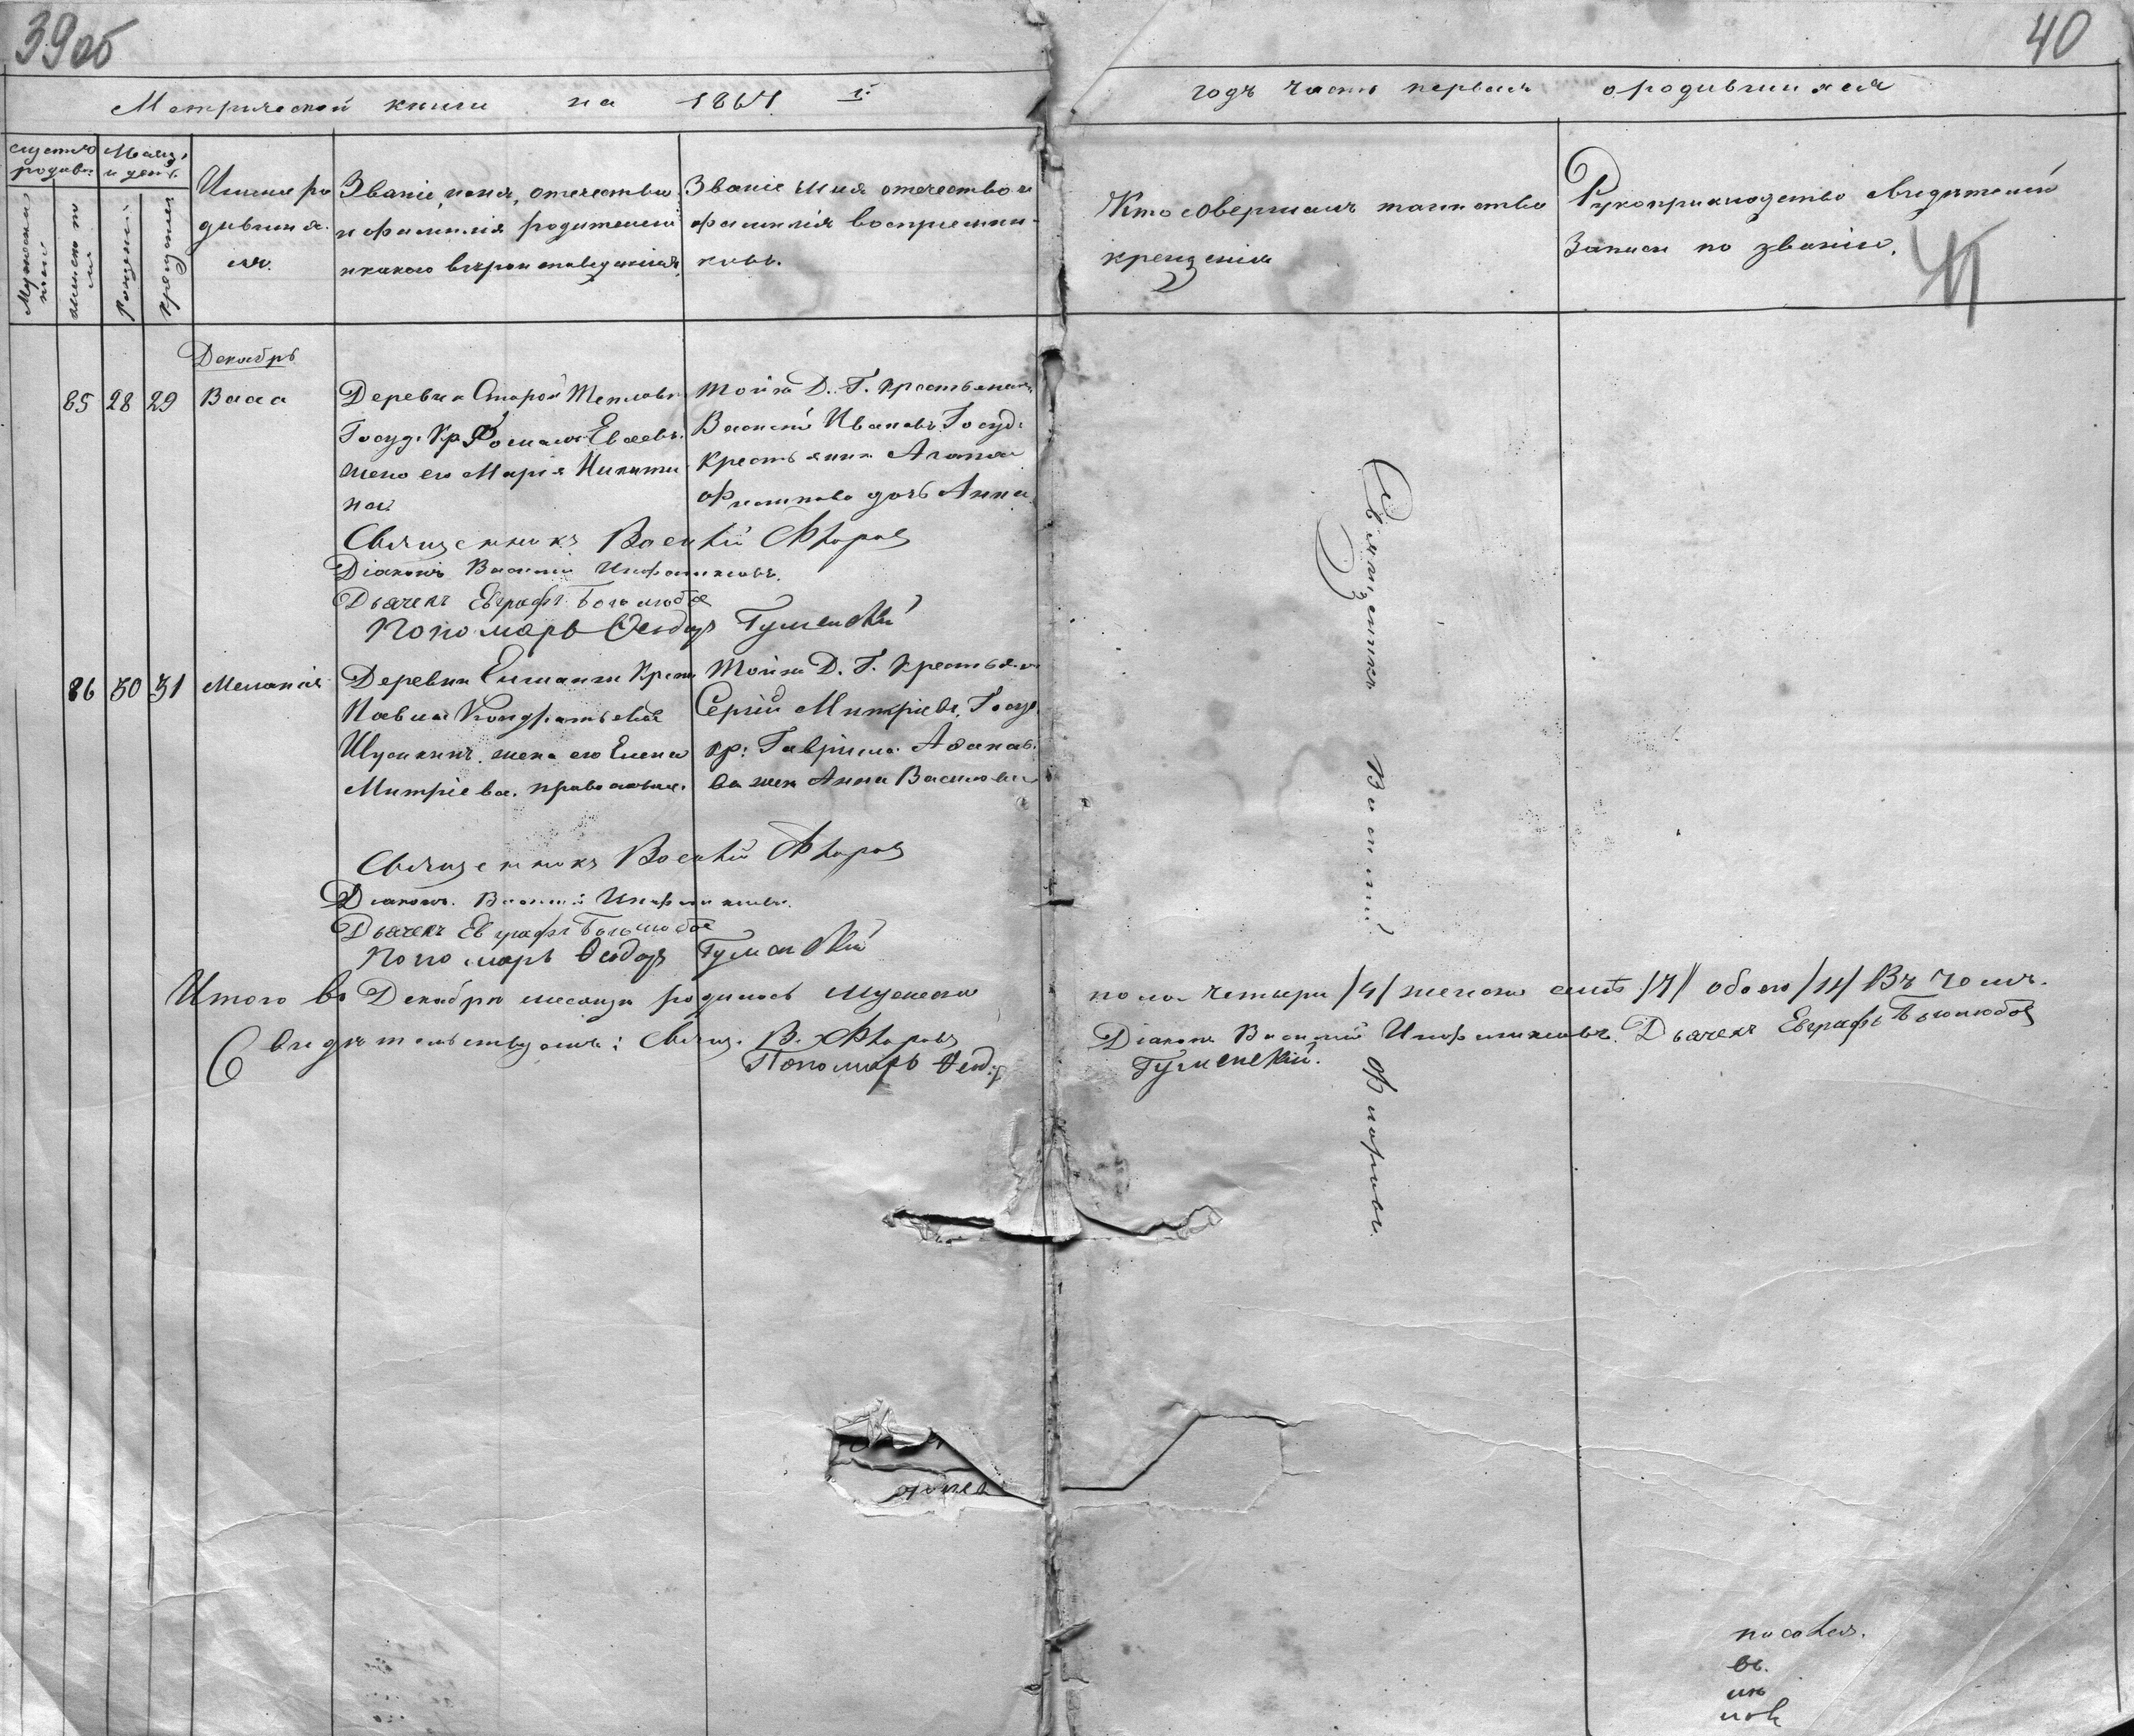 39об
40
Метрической книги на 1864 г:
годъ часть первая о родившихся
счетъ родивш.
Месяцъ и день
Мужеска пол
женска пол
Рожденія
крещенія
Имена ро
дивших
ся.
Званіе, имя, отечество
и фамилія родителей
и какого вероисповеданія
Званіе имя отечество и
фамилія воспріемни-
ковъ.
Кто совершалъ таинство
крещенія
Рукоприкладство свидетелей
записи по званію.
41
Декабрь
85 28 29 Васса
Деревни Старой Тепловки
Госуд: Кр. Евсеевъ.
жена его Марія Никити
на
Тойже Д. Г. крестьянинъ
Василій Ивановъ. Госуд:
крестьянина
Филипова дочь Анна.
Священникъ Василій Флоровъ
Діаконъ Василій
Дьячекъ Евграфъ Боголюбовъ
Пономарь Феодоръ Гуменскій
86 30 31 Меланія
Деревни Елшанки Крест
Павелъ Кондратьевъ
жена его Елена
Митріева. православн.
Тойже Д. Г. крестьянинъ
Сергій Митріевъ. Госуд.
кр: Гавріила
ва жен Анна Василева
Священникъ Василій Флоровъ
Діаконъ. Василій
Дьячекъ Евграфъ Боголюбовъ
Пономарь Феодоръ Гуменскій
Священникъ Василій Флоровъ.
Итого въ Декабре месяце родилось мужеска
пола четыре /4/ женска семь /7/ обоего /11/ Въ чемъ
Свидетельствуемъ: Свящ. В. Флоровъ
Діаконъ Василій Дьячекъ Евграфъ Боголюбовъ
Пономарь Феодоръ
Гуменскій.
въ.